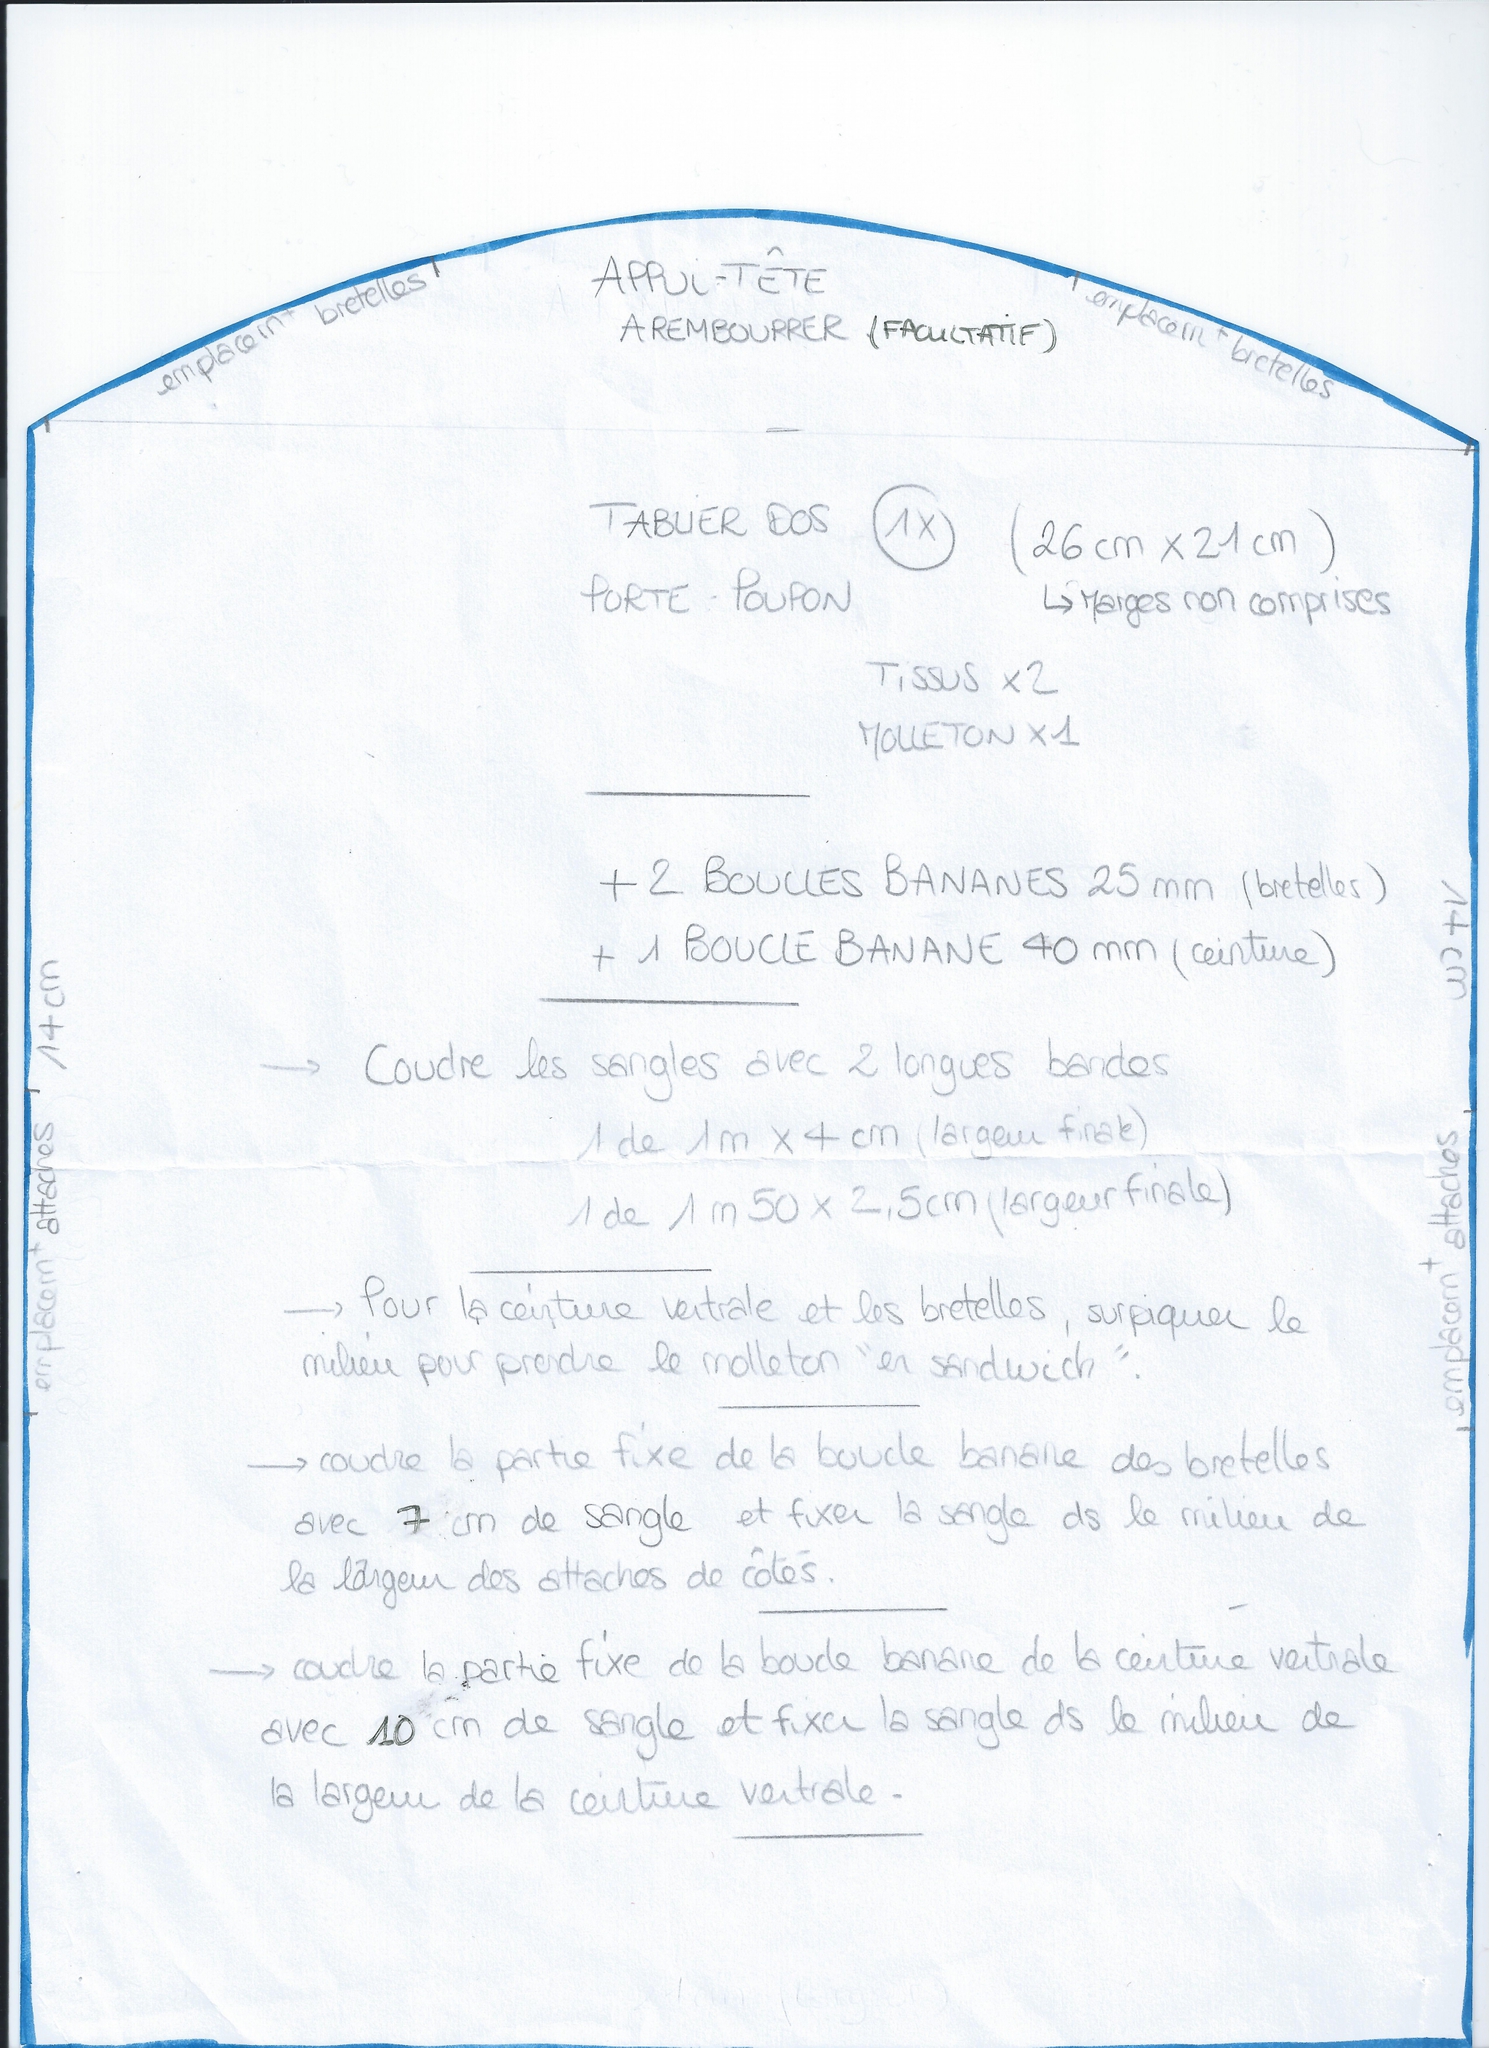 APPUI-TÊTE
A REMBOURRER (FACULTATIF)
emplacemt bretelles
emplacemt bretelles
TABLIER DOS 1X (26 cm x 21 cm)
PORTE-POUPON ↳ Marges non comprises
TISSUS x2
MOLLETON x1
+ 2 BOUCLES BANANES 25 mm (bretelles)
+ 1 BOUCLE BANANE 40 mm (ceinture)
14 cm
14 cm
emplacemt attaches
emplacemt attaches
→ Coudre les sangles avec 2 longues bandes
1 de 1m x 4 cm (largeur finale)
1 de 1m50 x 2,5cm (largeur finale)
→ Pour la ceinture ventrale et les bretelles, surpiquer le
milieu pour prendre le molleton "en sandwich".
→ coudre la partie fixe de la boucle banane des bretelles
avec 7 cm de sangle et fixer la sangle ds le milieu de
la largeur des attaches de côtés.
→ coudre la partie fixe de la boucle banane de la ceinture ventrale
avec 10 cm de sangle et fixer la sangle ds le milieu de
la largeur de la ceinture ventrale.